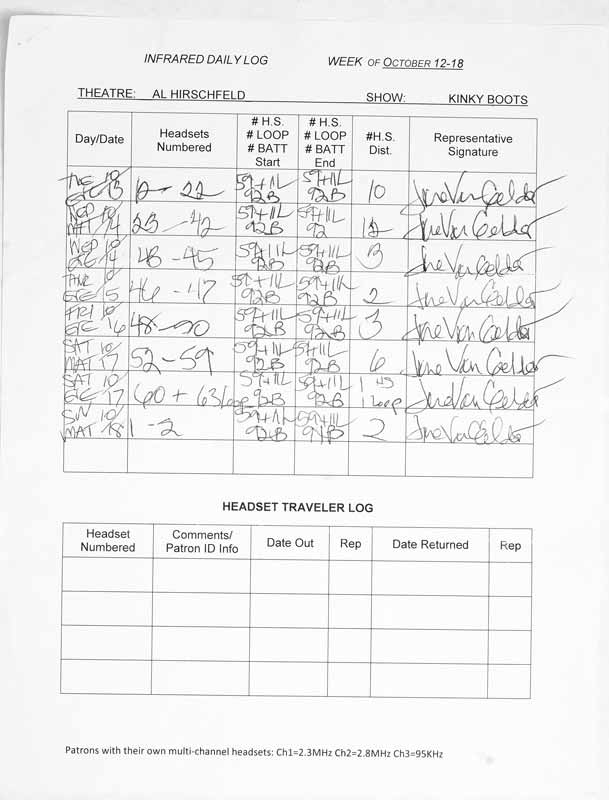 INFRARED DAILY LOG WEEK OF OCTOBER 12-18
THEATRE: AL HIRSCHFELD SHOW: KINKY BOOTS
Day/Date Headsets Numbered # H.S. # LOOP # BATT Start # H.S. # LOOP # BATT End #H.S. Dist. Representative Signature
TUE 10/13 EVE 12 - 22 59+11L 92B 59+11L 92B 10 Jane Van Gelder
WED 10/14 MAT 23 - 42 59+11L 92B 59+11L 92 Jane Van Gelder
WED 10/14 EVE 43 - 45 59+11L 92B 59+11L 92B 3 Jane Van Gelder
EVE 15 46 - 47 59+11L 92B 59+11L 92B 2 Jane Van Gelder
FRI 10/16 EVE 48 - 50 59+11L 92B 59+11L 92B 3 Jane Van Gelder
SAT 10/17 MAT 52 - 59 59+11L 92B 59+11L 92B 6 Jane Van Gelder
SAT 10/17 EVE 60 + 63 Loop 59+11L 92B 59+11L 92B 1 HS 1 Loop Jane Van Gelder
SUN 10/18 MAT 1 - 2 59+11L 92B 59+11L 2 Jane Van Gelder
HEADSET TRAVELER LOG
Headset Numbered Comments/ Patron ID Info Date Out Rep Date Returned Rep
Patrons with their own multi-channel headsets: Ch1=2.3MHz Ch2=2.8MHz Ch3=95KHz